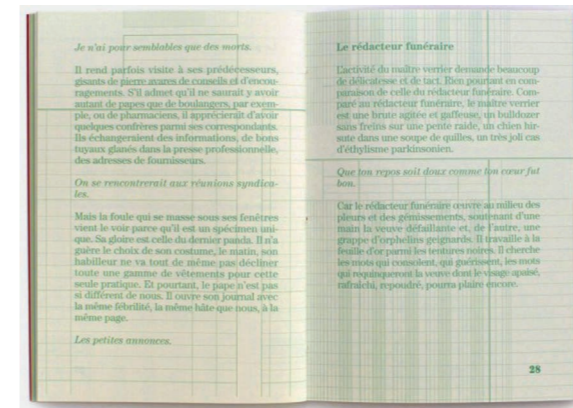 Je n'ai pour semblables que des morts.
Il rend parfois visite à ses prédécesseurs,
gisants de pierre avares de conseils et d'encou-
ragements. S'il admet qu'il ne saurait y avoir
autant de papes que de boulangers, par exem-
ple, ou de pharmaciens, il apprécierait d'avoir
quelques confrères parmi ses correspondants.
Ils échangeraient des informations, de bons
tuyaux glanés dans la presse professionnelle,
des adresses de fournisseurs.
On se rencontrerait aux réunions syndica-
les.
Mais la foule qui se masse sous ses fenêtres
vient le voir parce qu'il est un spécimen uni-
que. Sa gloire est celle du dernier panda. Il n'a
guère le choix de son costume, le matin, son
habilleur ne va tout de même pas décliner
toute une gamme de vêtements pour cette
seule pratique. Et pourtant, le pape n'est pas
si différent de nous. Il ouvre son journal avec
la même fébrilité, la même hâte que nous, à la
même page.
Les petites annonces.
Le rédacteur funéraire
L'activité du maître verrier demande beaucoup
de délicatesse et de tact. Rien pourtant en com-
paraison de celle du rédacteur funéraire. Com-
paré au rédacteur funéraire, le maître verrier
est une brute agitée et gaffeuse, un bulldozer
sans freins sur une pente raide, un chien hir-
sute dans une coupe de quilles, un très joli cas
d'éthylisme parkinsonien.
Que ton repos soit doux comme ton cœur fut
bon.
Car le rédacteur funéraire œuvre au milieu des
pleurs et des gémissements, soutenant d'une
main la veuve défaillante et, de l'autre, une
grappe d'orphelins geignards. Il travaille à la
feuille d'or parmi les tentures noires. Il cherche
les mots qui consolent, qui guérissent, les mots
qui requinqueront la veuve dont le visage apaisé,
rafraîchi, repoudré, pourra plaire encore.
28